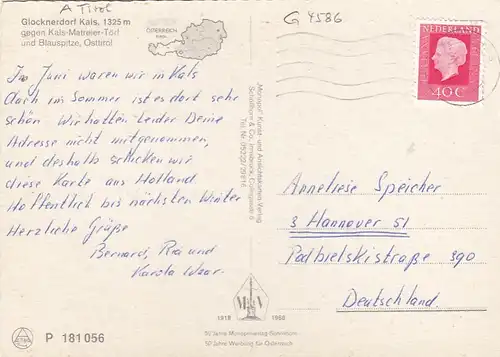 A Tirol
Glocknerdorf Kals, 1325 m
gegen Kals-Matreier-Törl
und Blauspitze, Osttirol
ÖSTERREICH
G 4586
NEDERLAND
40 C
In Juni waren wir in Kals
auch im Sommer ist es dort sehr
schön. Wir hatten leider Deine
Adresse nicht mitgenommen,
und deshalb schicken wir
diese Karte aus Holland.
Hoffentlich bis nächsten Winter
Herzliche Grüße
Bernard, Ria und
Karola
Anneliese Speicher
3 Hannover 51
Podbielskistraße 390
Deutschland.
"Monopol" Kunst- und Ansichtskarten-Verlag
Schöllhorn & Co., Innsbruck,
Tel. Nr. 05222/29116
M V
1918 1968
50 Jahre Monopolverlag Schöllhorn
50 Jahre Werbung für Österreich
P 181 056